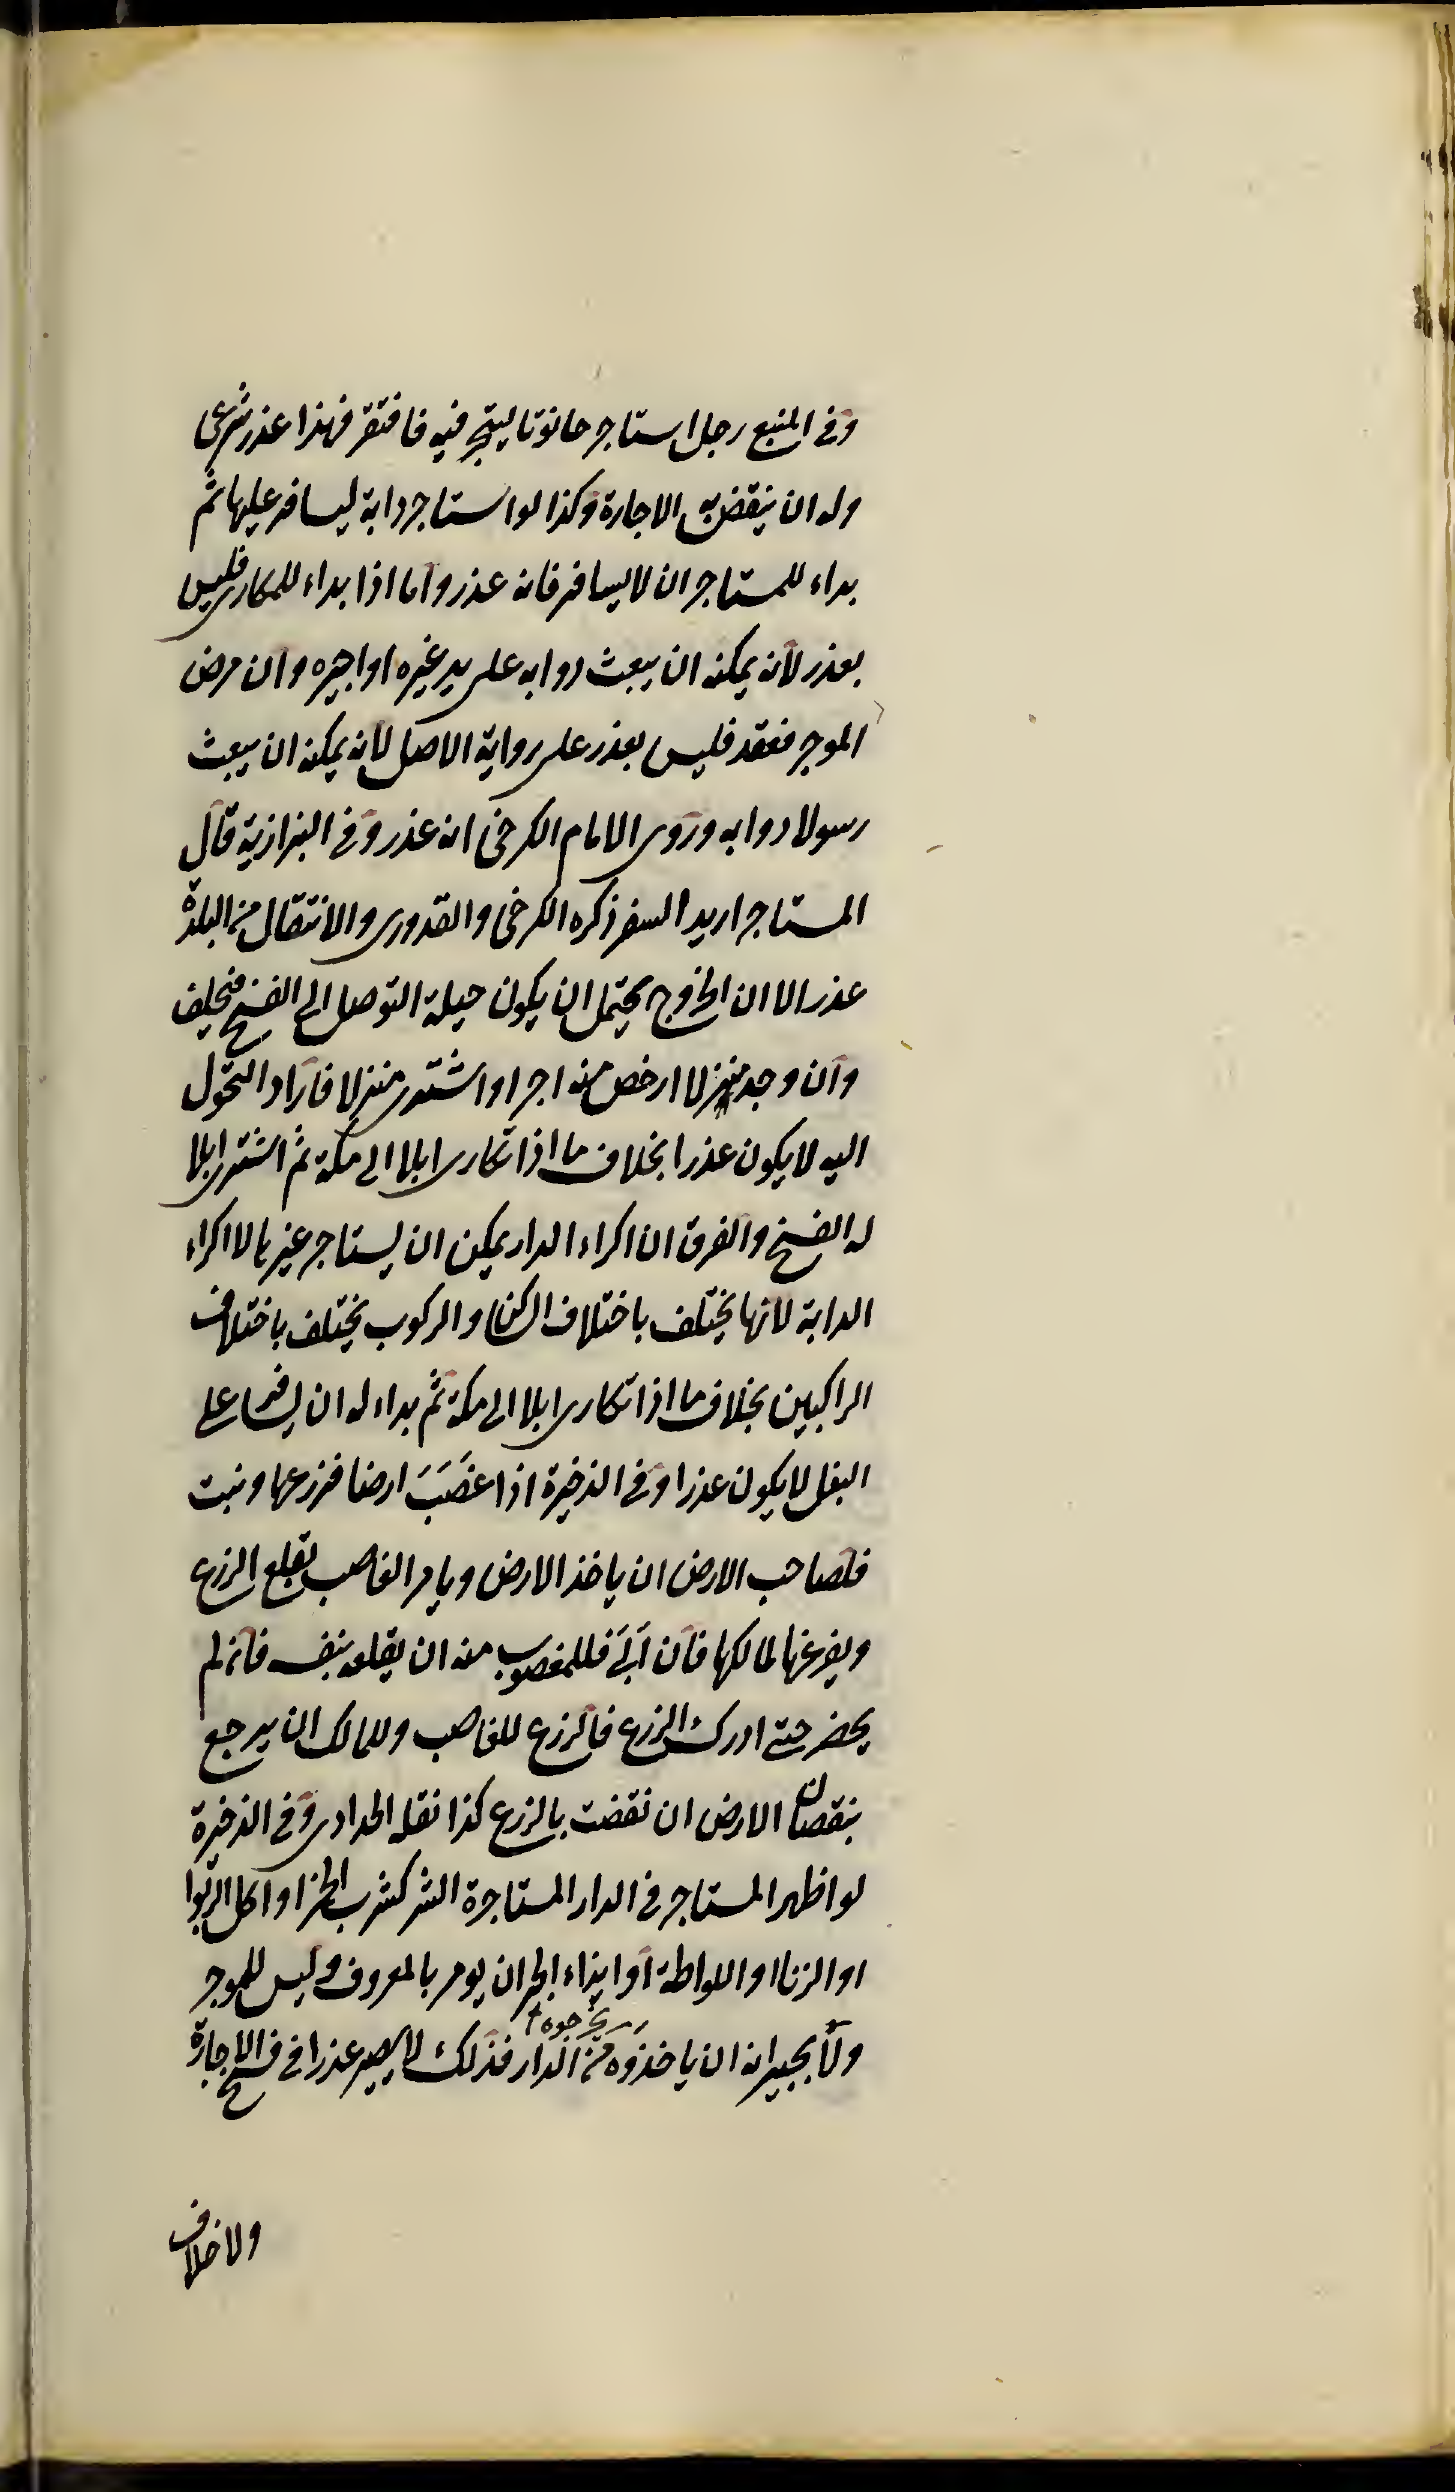 وفى المنبع رجل استاجر حانوتا ليتجر فيه فافتقر فهذا عذر شرعى
وله ان ينقض به الاجارة وكذا لو استاجر دابة ليسافر عليها ثم
بداء للمستاجر ان لا يسافر فانه عذر واما اذا بداء للمكارى فليس
بعذر لانه يمكنه ان يبعث دوابه على يد غيره او اجيره وان مرض
الموجر فقعد فليس بعذر على رواية الاصل لانه يمكنه ان يبعث
رسولا دوابه وروى الامام الكرخى انه عذر وفى البزازية قال
المستاجر اريد السفر ذكره الكرخى والقدورى والانتقال من البلدة
عذر الا ان الخروج يحتمل ان يكون حيلة التوصل الى الفسخ فيحلف
وان وجد منزلا ارخص منه اجرا او اشترى منزلا فاراد التحول
اليه لا يكون عذرا بخلاف ما اذا تكارى ابلا الى مكة ثم اشترى ابلا
له الفسخ والفرق ان اكراء الدار يمكن ان يستاجر غير بالا اكراء
الدابة لانها يختلف باختلاف السكنا والركوب يختلف باختلاف
الراكبين بخلاف ما اذا تكارى ابلا الى مكة ثم بداء له ان يسافر على
البغل لا يكون عذرا وفى الذخيرة اذا غصَبَ ارضا فزرعها ونبت
فلصاحب الارض ان ياخذ الارض ويامر الغاصب بقلع الزرع
ويفرغها لمالكها فان اَبَىَ فللمغصوب منه ان يقلعه بنفسه فان لم
يحضر حتى ادرك الزرع فالزرع للغاصب وللمالك ان يرجع
بنقصان الارض ان نقضت بالزرع كذا نقله الحدادى وفى الذخيرة
لو اظهر المستاجر فى الدار المستاجرة الشر كشرب الخمر او اكل الربوا
او الزنا او اللواطة او ايذاء الجيران يومر بالمعروف وليس للموجر
ولا بجيرانه ان ياخذوه يخرجوه من الدار فذلك لا يصير عذرا فى فسخ الاجارة
ولا خلاف